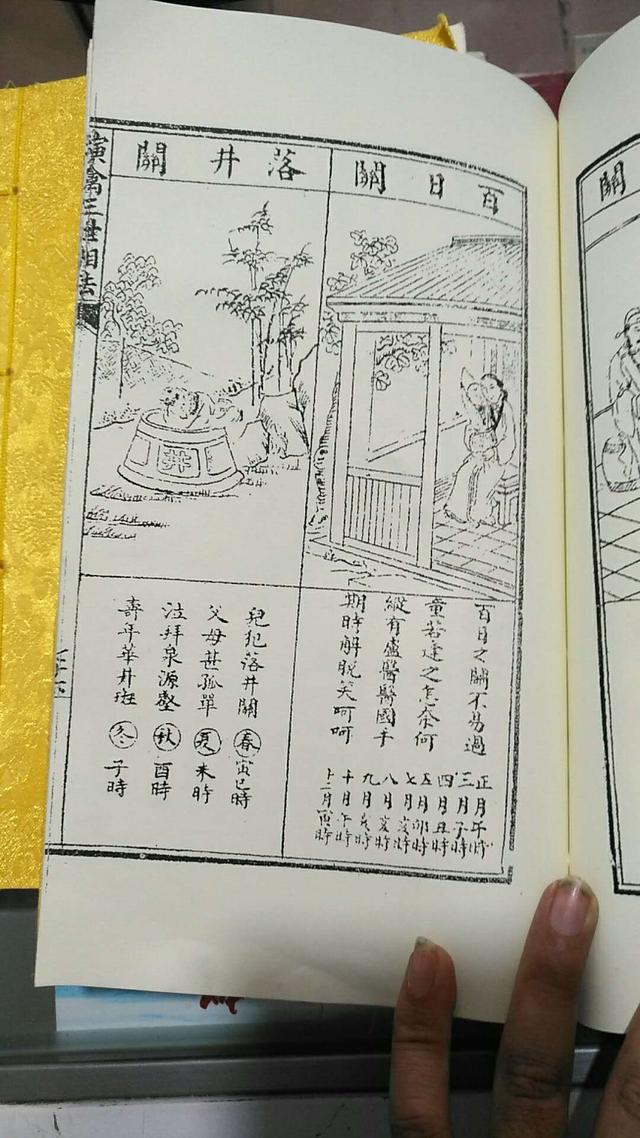 關
百日關
百日之關不易過
童若逢之怎奈何
縱有盧醫醫國手
期時解脫笑呵呵
正月午時
三月子時
四月丑時
五月卯時
七月亥時
八月亥時
九月亥時
十月午時
十二月寅時
落井關
井
兒犯落井關
父母甚孤單
泣拜泉源盤
壽年華井班
春 寅巳時
夏 未時
秋 酉時
冬 子時
演禽三世相法